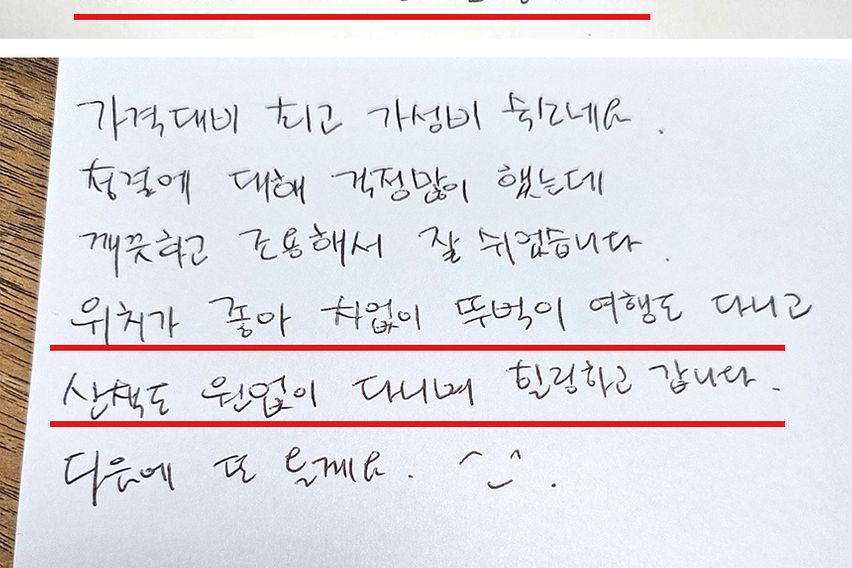 가격대비 최고 가성비 숙소네요.
청결에 대해 걱정많이 했는데
깨끗하고 조용해서 잘 쉬었습니다.
위치가 좋아 차없이 뚜벅이 여행도 다니고
산책도 원없이 다니며 힐링하고 갑니다.
다음에 또 올게요. ^_^.